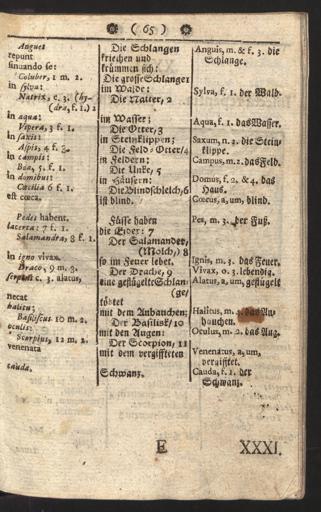 ( 65 )
Angues
repunt
sinuando se:
Coluber, 1 m. 2.
in sylva:
Natrix, c. 3. (hy-
(dra, f. 1.) 2
in aqua:
Vipera, 3 f. 1.
in saxis:
Aspis, 4 f. 3.
in campis:
Boa, 5 f. 1.
in domibus:
Cœcilia 6 f. 1.
est cœca.
Pedes habent.
lacerta: 7 f. 1.
Salamandra, 8 f. 1.
in igne vivax.
Draco, 9 m. 3.
serpens c. 3. alatus,
necat
halitu;
Basiliscus 10 m. 2.
oculis:
Scorpius, 11 m. 2.
venenata
cauda.
Die Schlangen
kriechen und
krümmen sich:
Die grosse Schlange 1
im Walde:
Die Natter, 2
im Wasser;
Die Otter, 3
in Steinklippen;
Die Feld-Otter/4
in Feldern;
Die Unke, 5
in Häusern;
Die Blindschleich, 6
ist blind.
Füsse haben
die Eidex: 7
Der Salamander,
(Molch,) 8
so im Feuer lebet.
Der Drache, 9
eine geflügelte Schlan-
(ge/
tödtet
mit dem Anhauchen;
Der Basilisk/10
mit den Augen:
Der Scorpion, 11
mit dem vergiffteten
Schwanz.
Anguis, m. & f. 3. die
Schlange.
Sylva, f. 1. der Wald.
Aqua, f. 1. das Wasser.
Saxum, n. 2. die Stein-
klippe.
Campus, m. 2. das Feld.
Domus, f. 2. & 4. das
Haus.
Cœcus, a, um, blind.
Pes, m. 3. der Fuß.
Ignis, m. 3. das Feuer.
Vivax, o. 3. lebendig.
Alatus, a, um, geflügelt
Halitus, m. das An-
hauchen.
Oculus, m. 2. das Aug.
Venenatus, a, um,
vergifftet.
Cauda, f. 1. der
Schwanz.
E
XXXI.